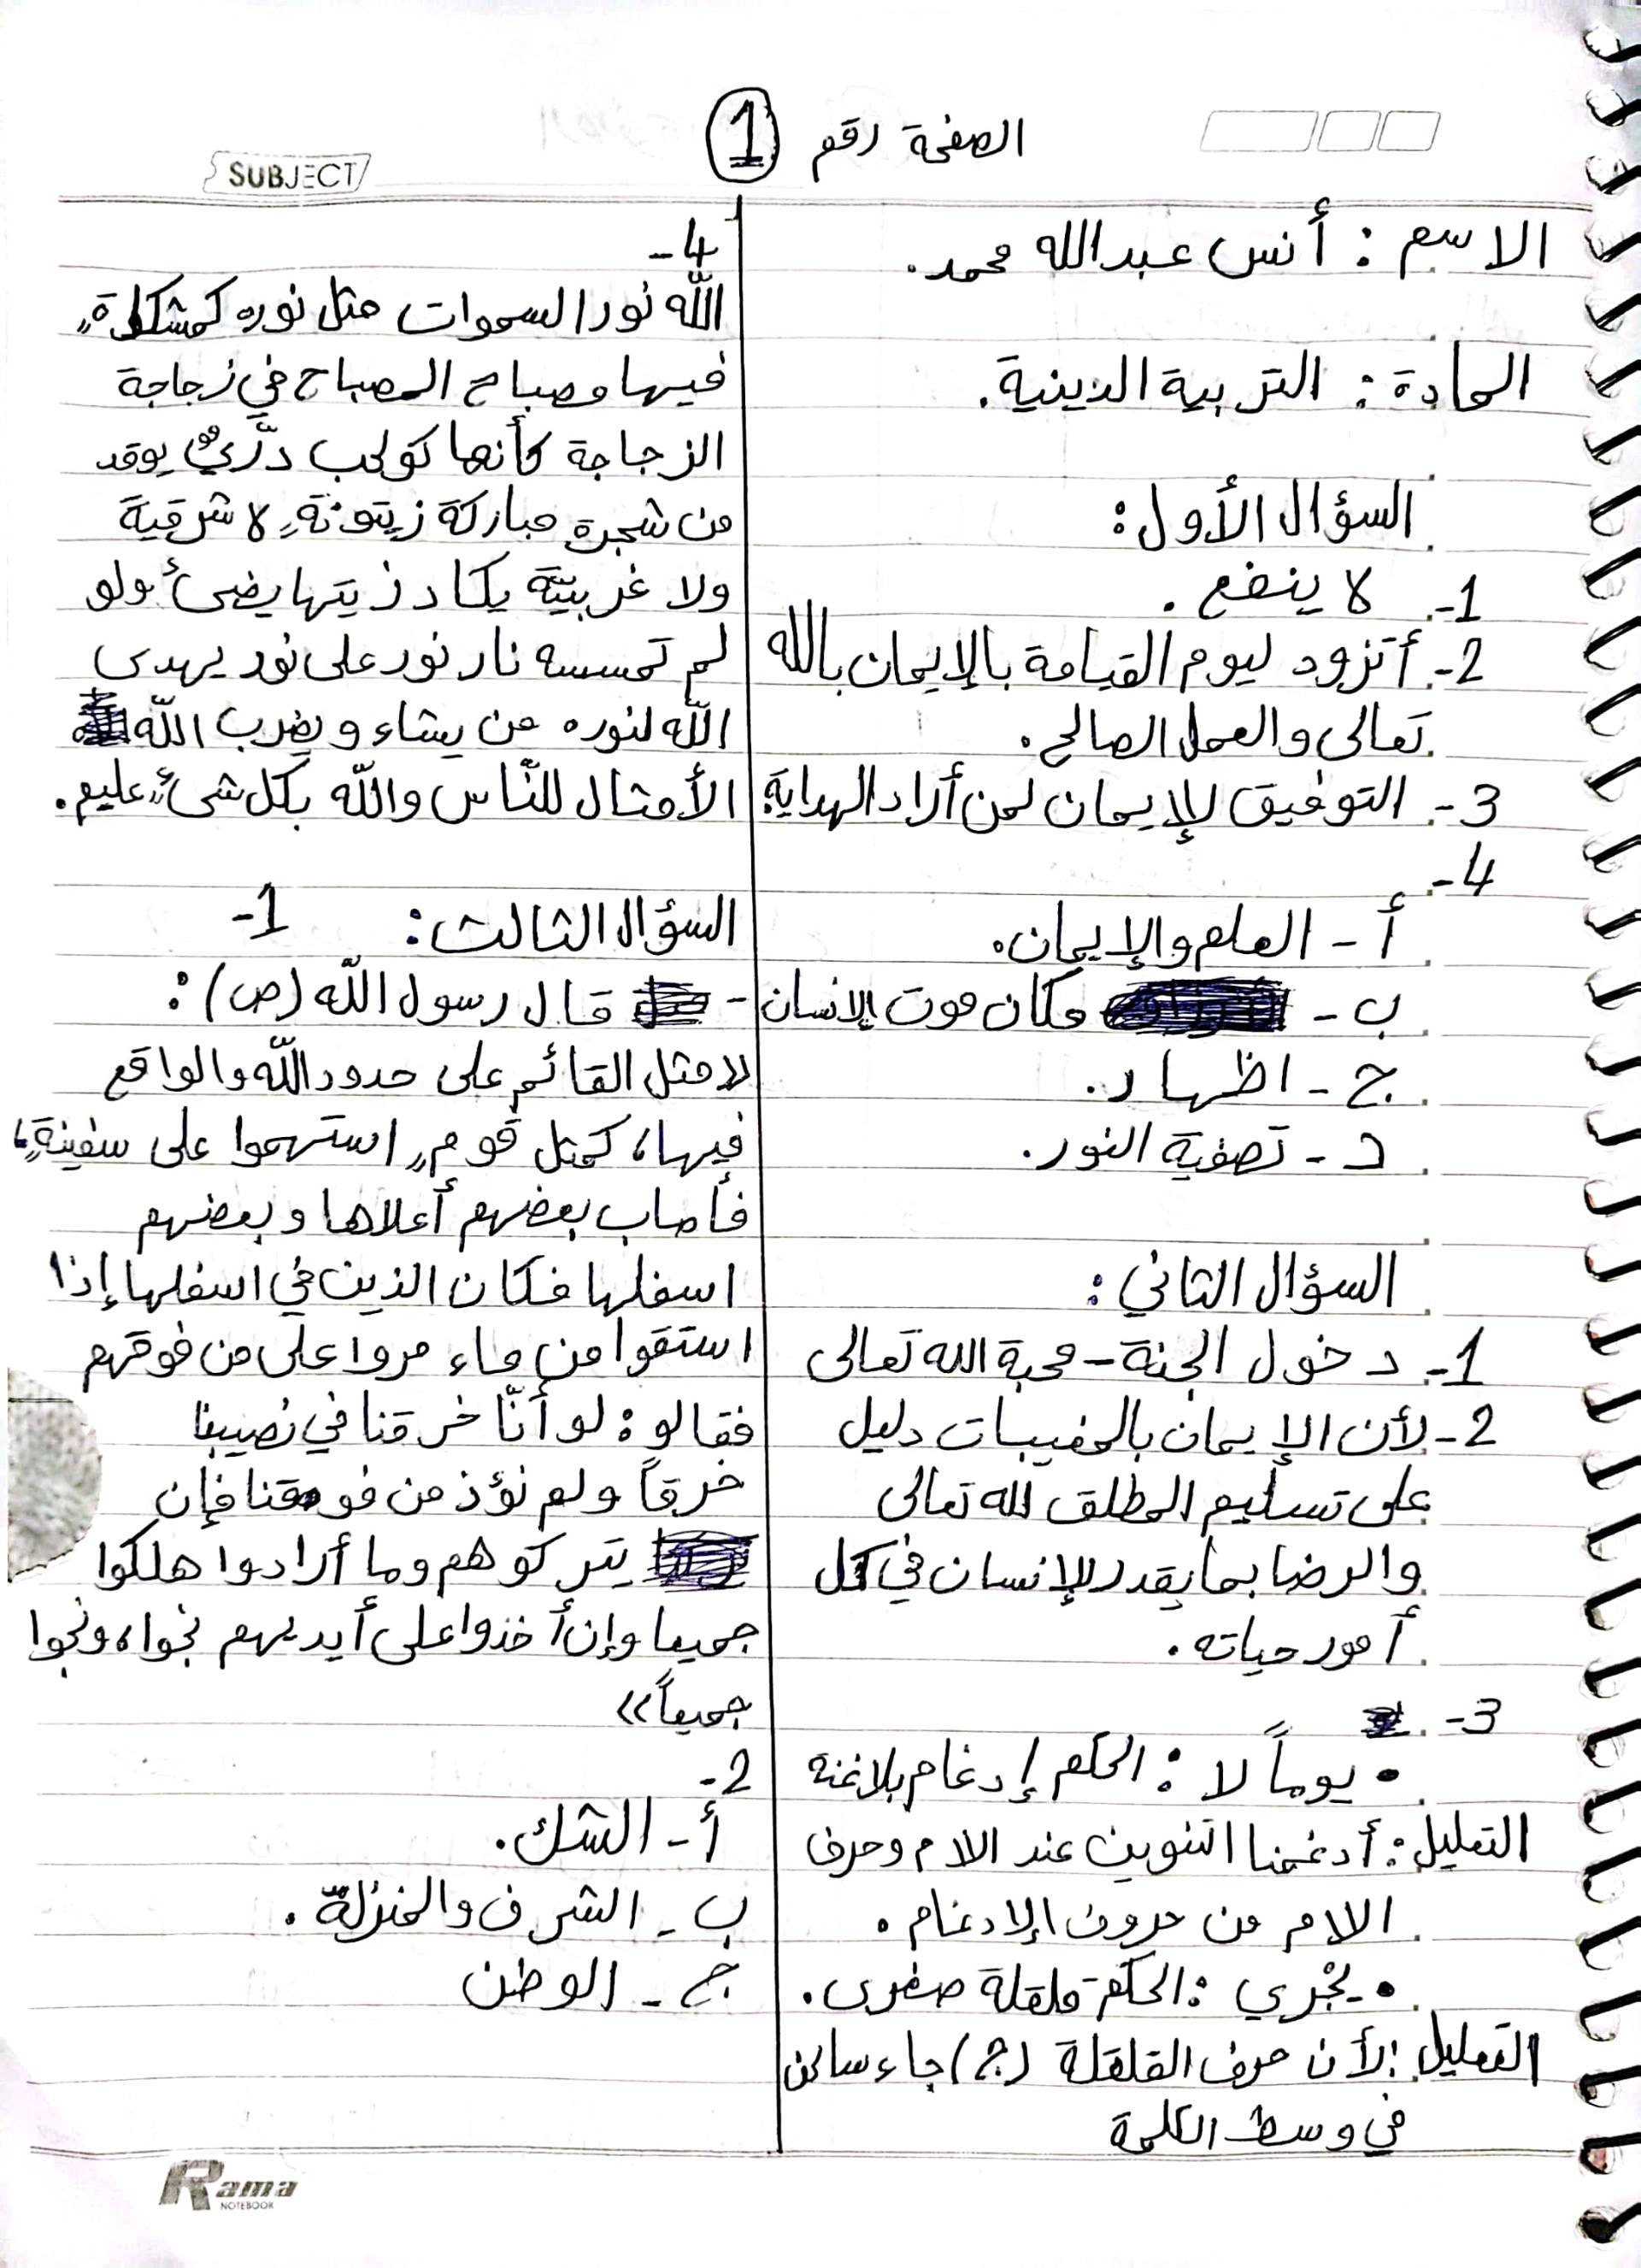 الصفحة رقم 1
SUBJECT
الاسم : أنس عبدالله محمد.
المادة : التربية الدينية.
السؤال الأول :
1- لا ينفع .
2- أتزود ليوم القيامة بالإيمان بالله
تعالى والعمل الصالح .
3- التوفيق للإيمان لمن أراد الهداية
4-
أ - العلم والإيمان.
ب - مكان موت الإنسان -
ج - اظهار.
د - تصفية النور.
السؤال الثاني :
1- دخول الجنة - محبة الله تعالى
2- لأن الإيمان بالمغيبات دليل
على تسليم المطلق لله تعالى
والرضا بما يقدر للإنسان في كل
أمور حياته .
3-
• يوماً لا : الحكم إدغام بلاغنه
التعليل : أدغمنا التنوين عند الام وحرف
اللام من حروف الإدغام .
• يجْري : الحكم قلقلة صغرى .
التعليل : لأن حرف القلقلة (ج) جاء ساكن
في وسط الكلمة
4-
اللّه نور السموات مثل نوره كمشكاةٍ
فيها مصباح المصباح في زجاجة
الزجاجة كأنها كوكب درّيٌ يوقد
من شجرة مباركة زيتونةٍ لا شرقية
ولا غربيّة يكاد زيتها يضئ ولو
لم تمسسه نار نور على نور يهدى
اللّه لنوره من يشاء ويضرب اللّه
الأمثال للنّاس واللّه بكل شئٍ عليم .
السؤال الثالث : 1-
قال رسول اللّه (ص) :
لا مثل القائم على حدود اللّه والواقع
فيها، كمثل قومٍ استهموا على سفينةٍ،
فأصاب بعضهم أعلاها وبعضهم
اسفلها فكان الذين في اسفلها إذا
استقوا من ماء مروا على من فوقهم
فقالو : لو أنّا خرقنا في نصيبنا
خرقاً ولم نؤذ من فوقنا فإن
يتركوهم وما أرادوا هلكوا
جميعا وإن أخذوا على أيديهم نجوا، ونجوا
جميعاً»
2-
أ - الشك .
ب - الشرف والمنزلة .
ج - الوطن
Rama
NOTEBOOK